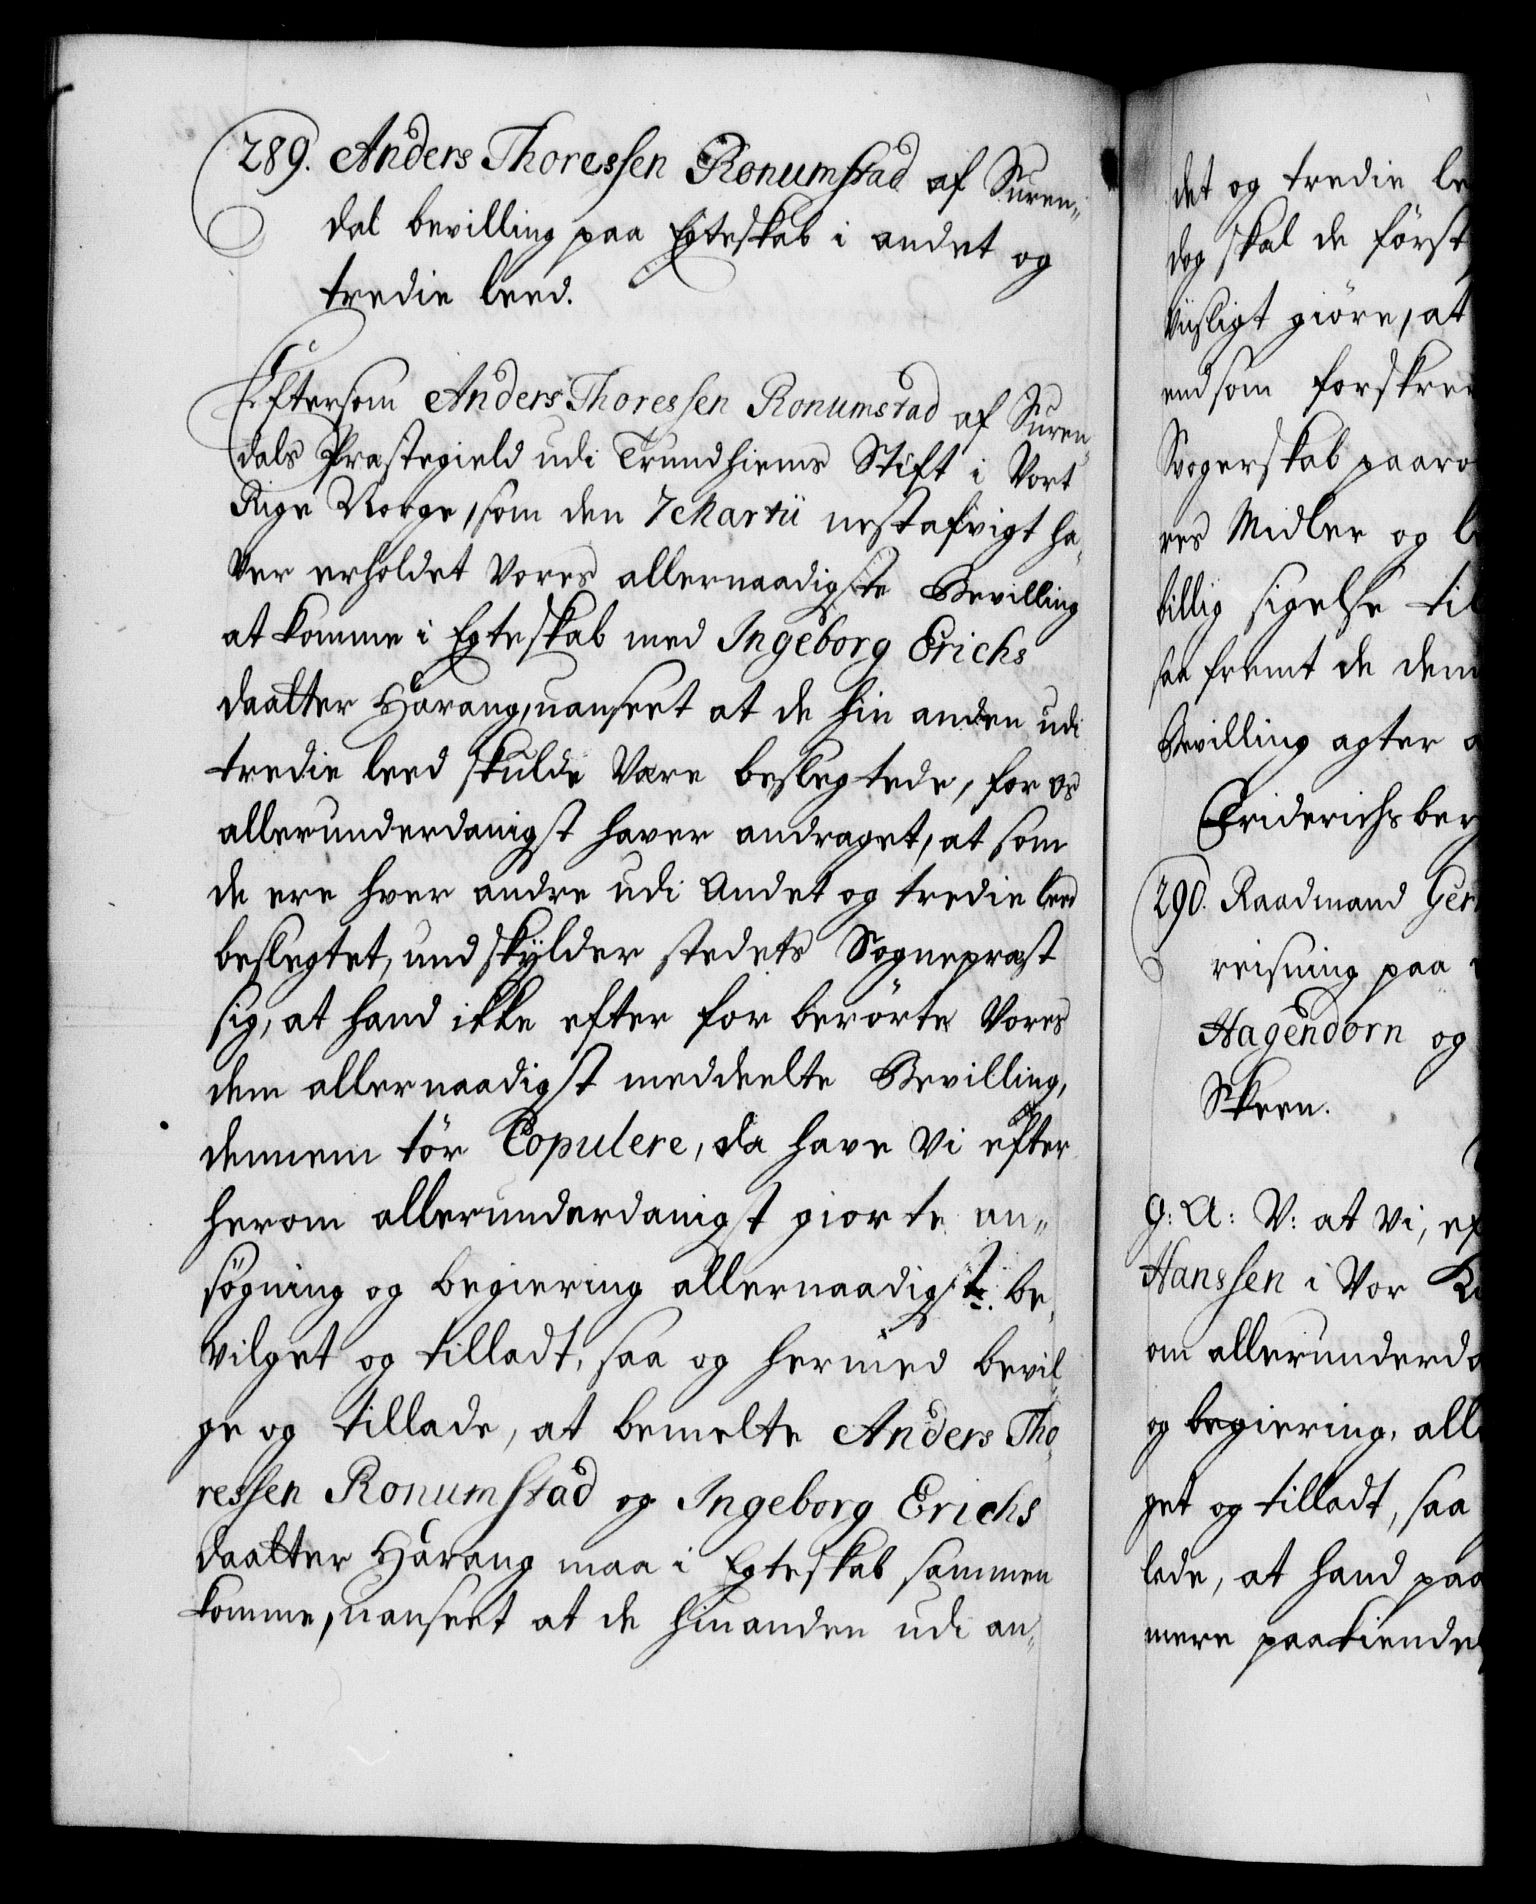 289. Anders Thoressen Ronumstad af Suren„
dal bevilling paa Egteskab i andet og
tredie leed.
Eftersom Anders Thoressen Ronumstad af Suren„
dals Præstegield udi Trundhiems Stift i Vort
Rige Norge, som den 7 Martii nestafvigt ha„
ver erholdet Vores allernaadigste Bevilling
at komme i Egteskab med Ingeborg Erichs
daatter Hårang, uanseet at de hin anden udi
tredie leed skulde være beslegtede, for os
allerunderdanigst haver andraget, at som
de ere hver andre udi Andet og tredie leed
beslegtet, undskylder stedets Sognepræst
sig, at hand ikke efter forberörte Vores
dem allernaadigst meddeelte Bevilling,
dennem tör Copulere, da have Vi efter
herom allerunderdanigst giorte an„
sögning og begiering allernaadigst be„
vilget og tilladt, saa og hermed bevil„
ge og tillade, at bemelte Anders Tho„
ressen Ronumstad og Ingeborg Erichs
daatter Hårang maa i Egteskab sammen
komme, uanseet at de hinanden udi an„
det og tredie le
dog skal de först
viisligt giöre, at
end som forskre
Svogerskab paaro
res Midler og
tillig sigelse til
saa fremt de dem
Bevilling agter
Friderichsberg
290. Raadmand Ger
reisning paa
Hagendorn og
Skeen.
G: A: V: at Vi, ef
Hanssen i Vor
om allerunderda
og begiering, all
get og tilladt, saa
lade, at hand paa
mere paakiende